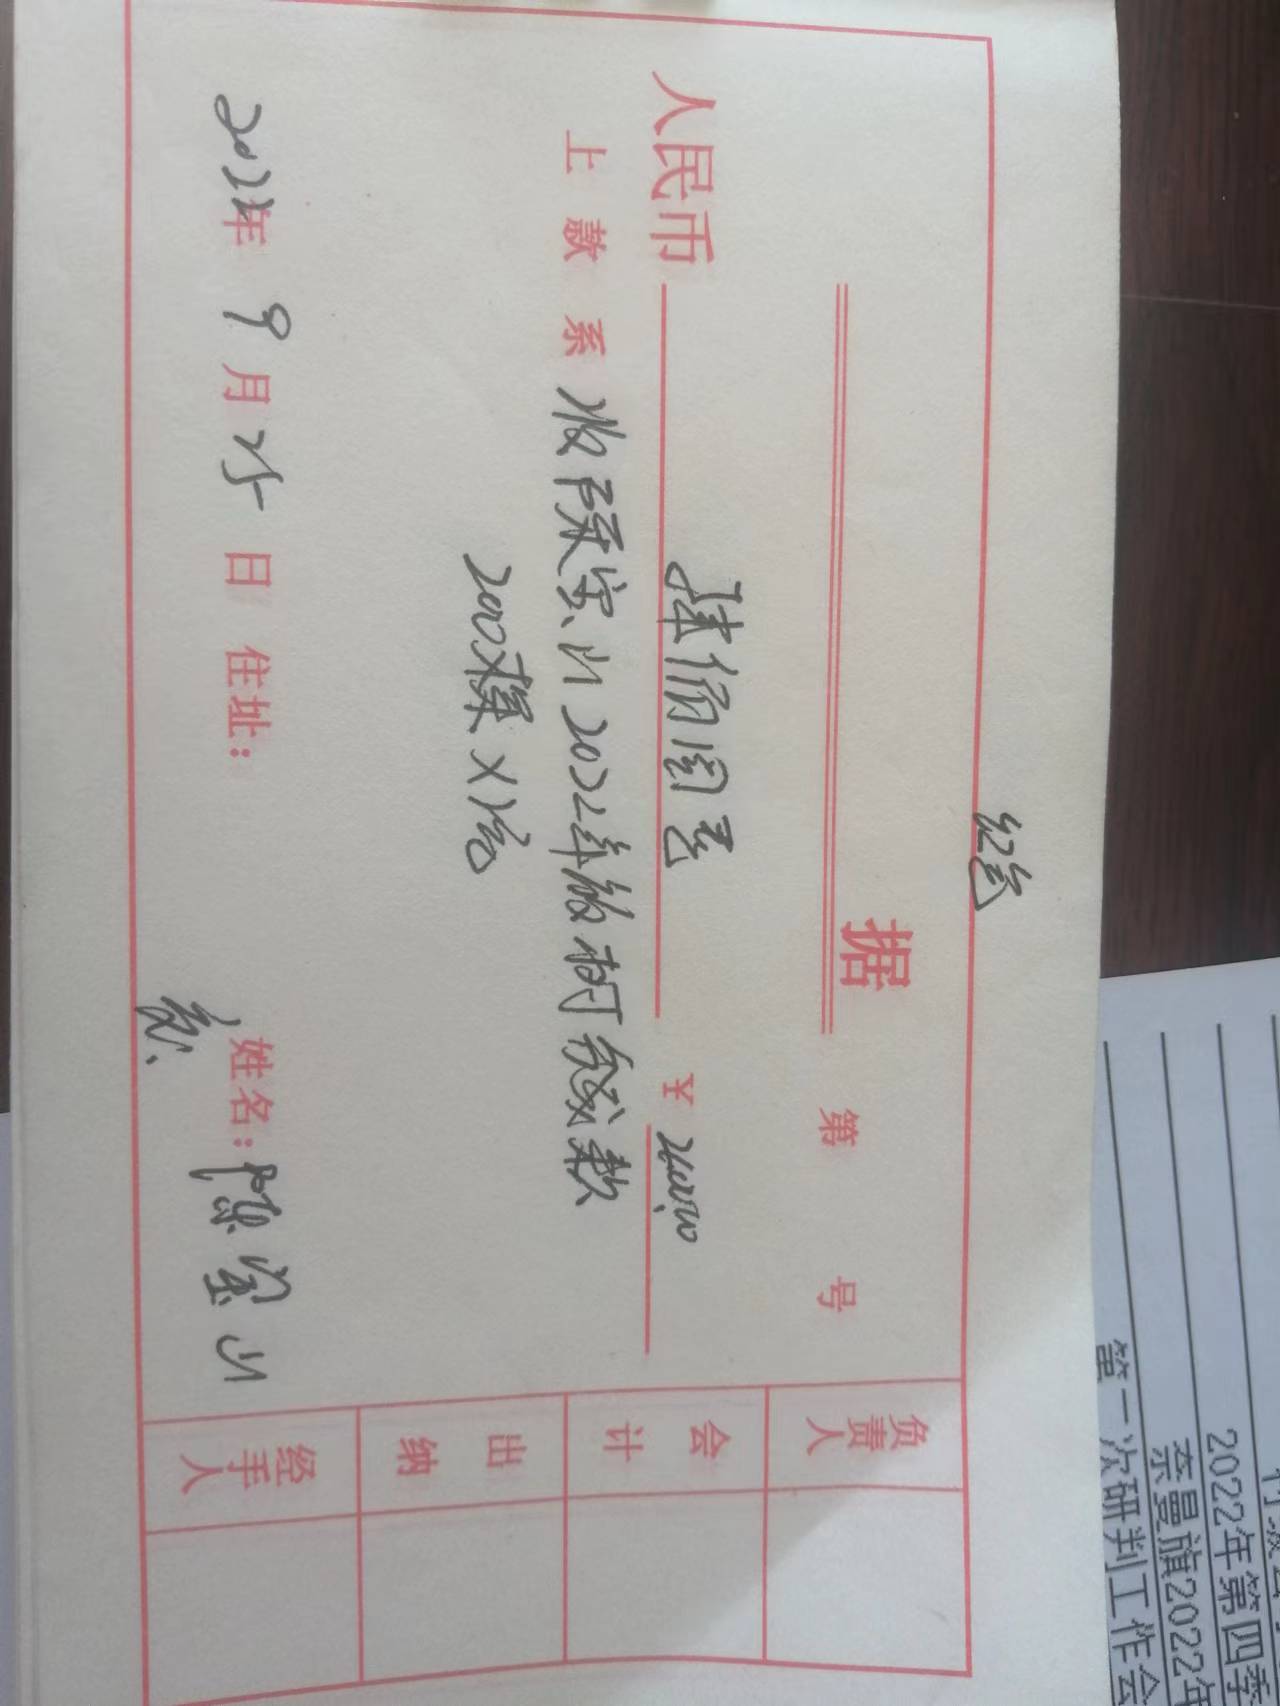 据
第 号
人民币 陆佰圆整 ¥
上款系 收陈宝山2022年的树钱款
200棵×3元
2022年9月25日 住址： 姓名：陈宝山
负责人
会计
出纳
经手人
2022年第四季
奈曼旗2022年
第一次研判工作会